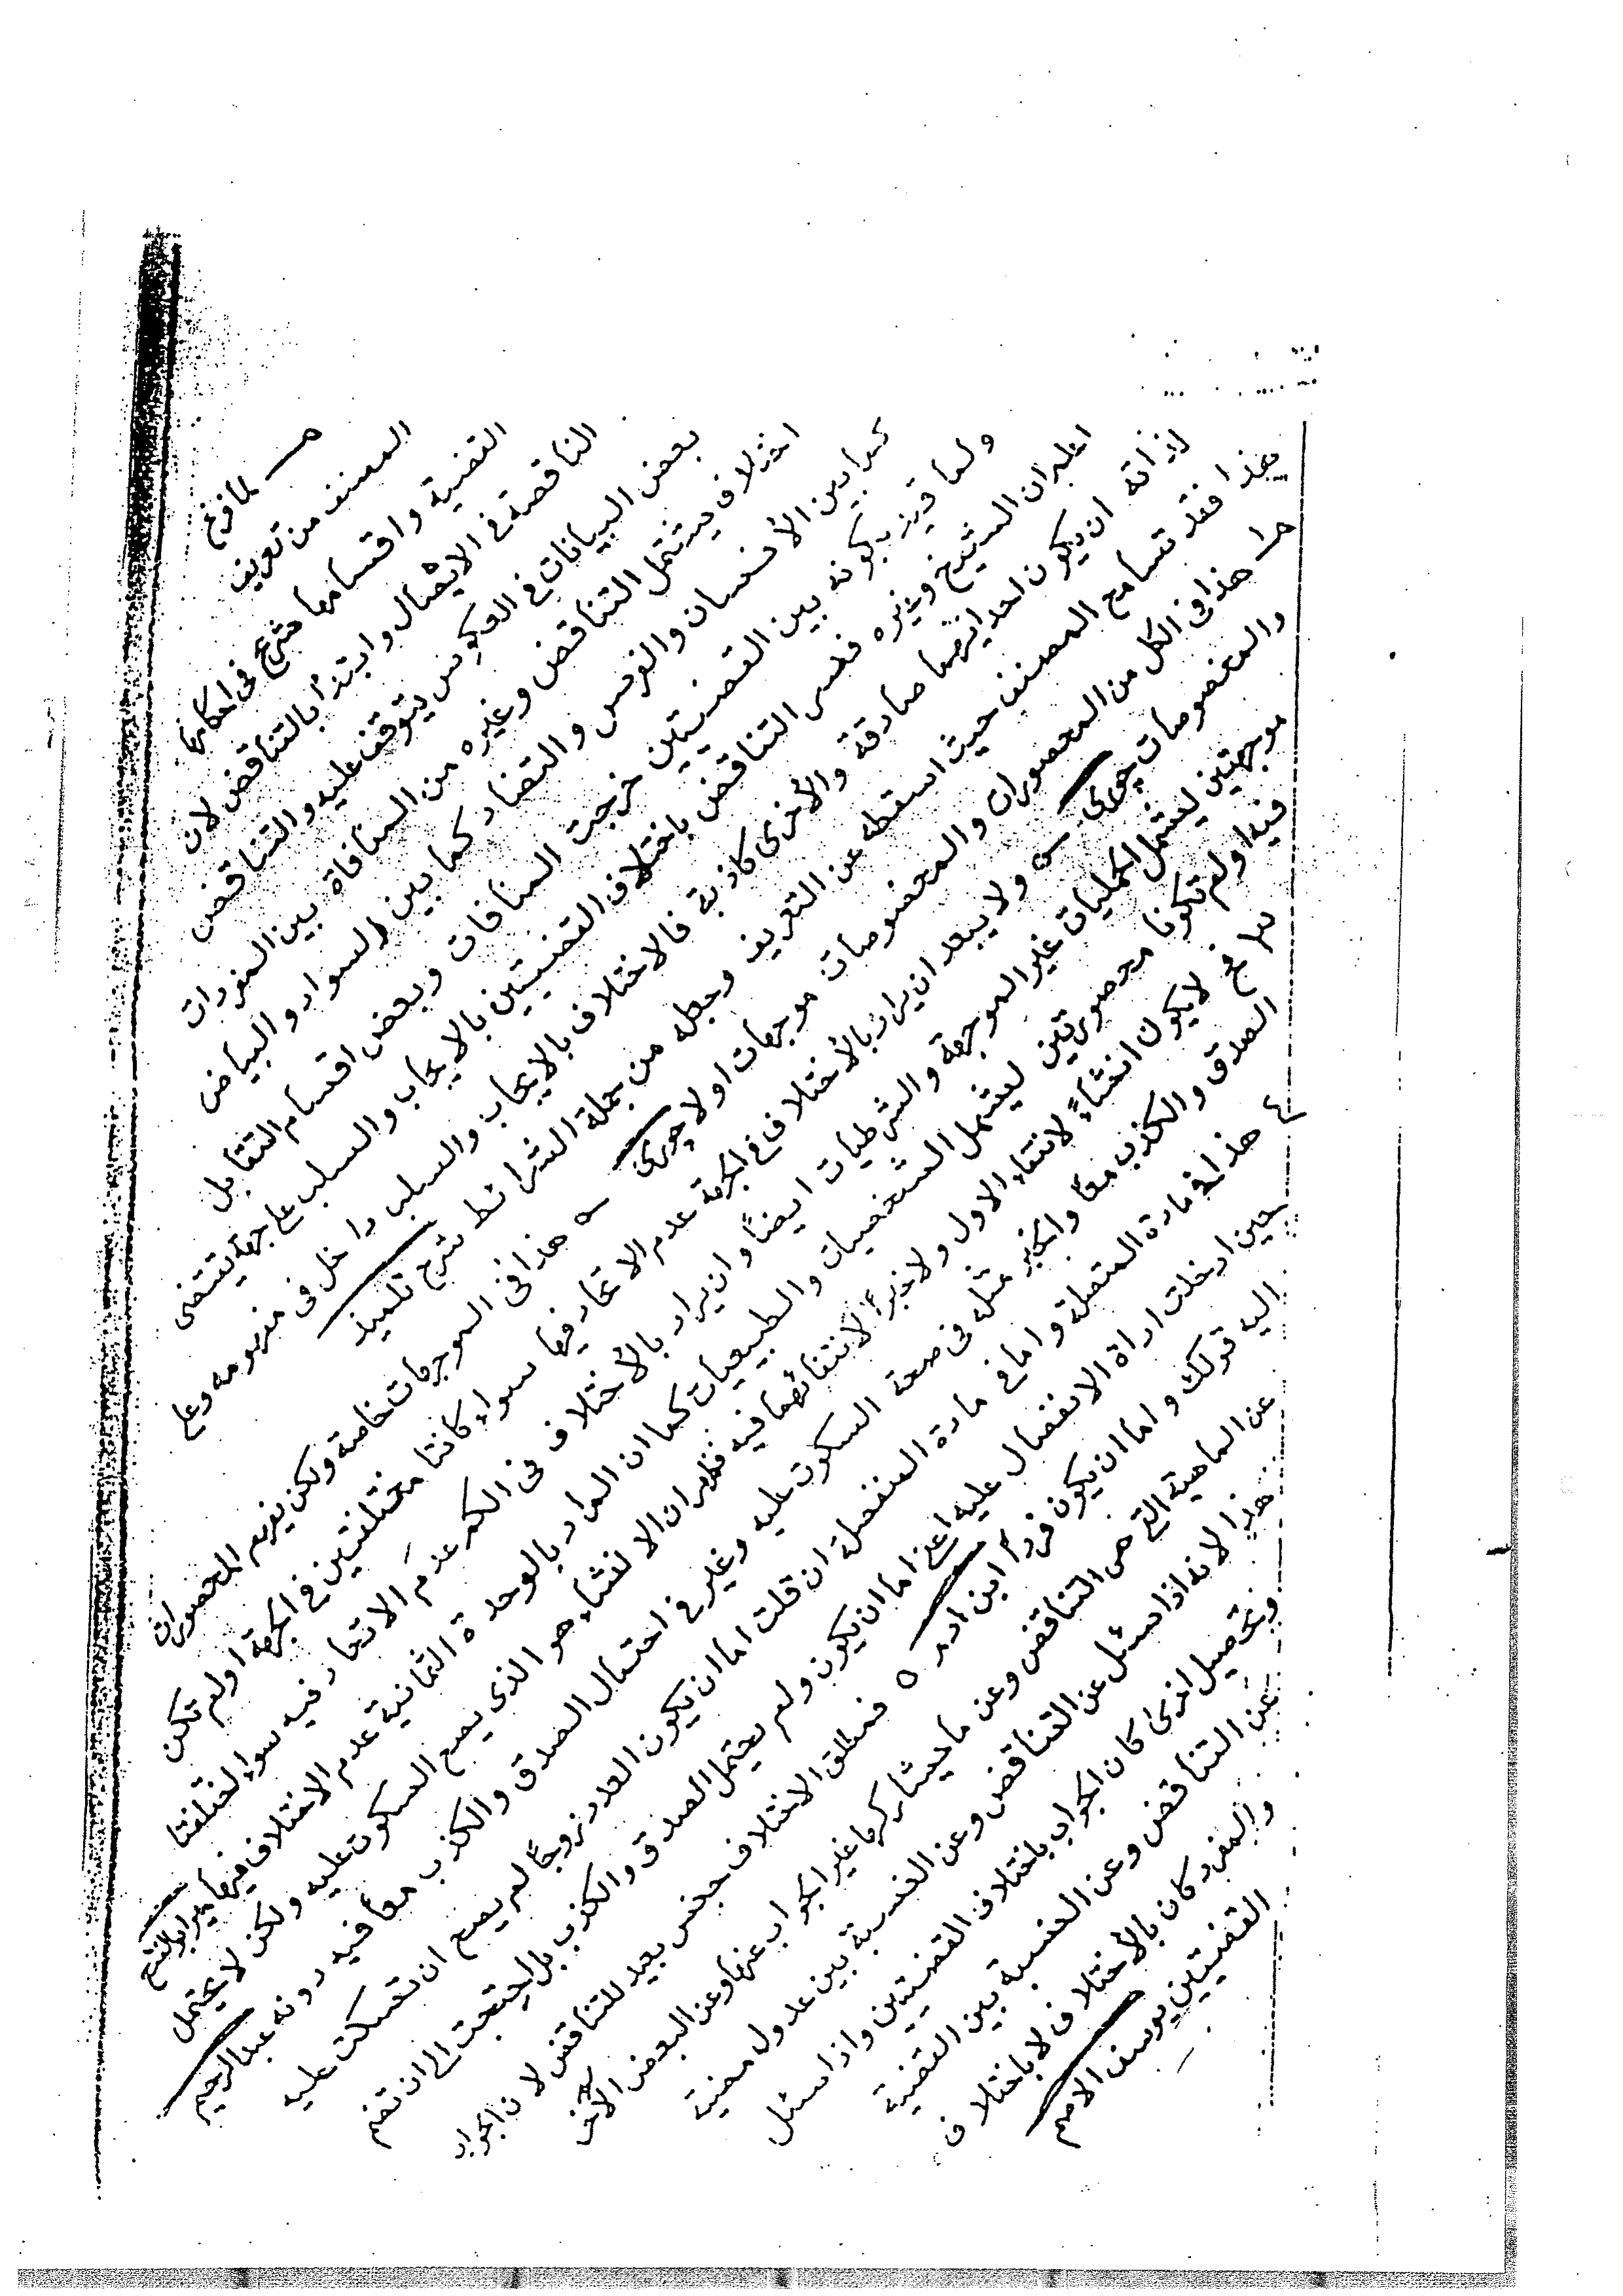 لما فرغ
المصنف من تعريف
القضية واقسامها شرع فى احكامها
الناقصة فى الايصال وابتدأ بالتناقض لان
بعض البيانات فى العكوس يتوقف عليه والتناقض
اختلاف يشتمل التناقض وغيره من المنافاة بين المفردات
كما بين الأنسان والفرس والتضاد كما بين السواد والبياض
ولما قيد بكونه بين القضيتين خرجت المنافات وبعض اقسام التقابل
اعلم ان الشيخ وغيره فسر التناقض باختلاف القضيتين بالايجاب والسلب على جهة يقتضى
لذاته ان يكون احديهما صادقة والأخرى كاذبة فالاختلاف بالايجاب والسلب داخل فى مفهومه وعلى
هذا فقد تسامح المصنف حيث اسقطه عن التعريف وجعله من جملة الشرائط شرح تلميذ
هذا فى الكل من المحصورات والمخصوصات موجهات اولا جورى هذا فى الموجهات خاصة ولكن يعم المحصورات
والمخصوصات جورى ولا يبعد ان يراد بالأختلاف فى الجهة عدم الاتحاد فيها سواء كانتا مختلفتين فى الجهة اولم تكن
موجهتين ليشتمل الحمليات غير الموجهة والشرطيات ايضًا وان يراد بالأختلاف فى الكم عدم الاتحاد فيه سواء اختلفتا
فيه اولم تكونا محصورتين ليشمل الشخصيات والطبيعيات كما ان المراد بالوحدة الثمانية عدم الاختلاف فيها ميرابوالفتح
فح لايكون انشاءً لانتفاء الاول ولا خبرًا لانتفائهما فيه ان الانشاء هو الذى يصح السكوت عليه ولكن لا يحتمل
الصدق والكذب معًا والخبر مثله فى صحة السكوت عليه وغيره فى احتمال الصدق والكذب معًا فيه دونه عبدالرحيم
٤ هذا فى مادة المتصلة واما فى مادة المنفصلة ان قلت اما ان يكون العدد زوجًا لم يصح ان تسكت عليه
حين ادخلت اداة الانفصال عليه اعنى اما ان يكون ولم يحتمل الصدق والكذب بل احتجت الى ان تضم
اليه قولك واما ان يكون فردًا ابن ادم ٥ فمطلق الاختلاف جنس بعيد للتناقض لان الجواب
عن الماهية التى هى التناقض وعن مايشاركها غير الجواب عنها وعن البعض الآخر
هذا لانه اذا سئل عن التناقض وعن النسبة بين عدول
وتحصيل اخرى كان الجواب باختلاف القضيتين واذا سئل
عن التناقض وعن النسبة بين القضية
والمفرد كان بالأختلاف لا باختلاف
القضيتين يوسف الاصم